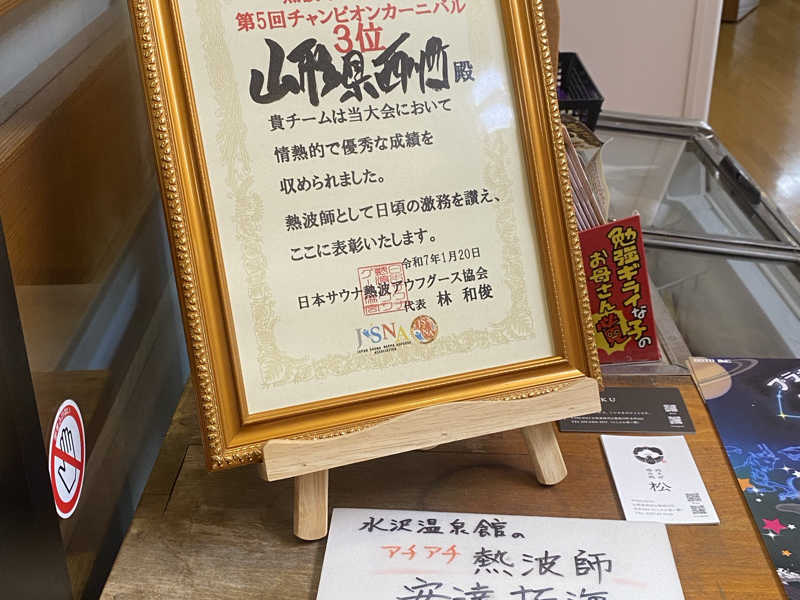 第5回チャンピオンカーニバル
3位
山形県西川町殿
貴チームは当大会において
情熱的で優秀な成績を
収められました。
熱波師として日頃の激務を讃え、
ここに表彰いたします。
令和7年1月20日
日本サウナ熱波アウフグース協会
代表 林 和俊
JSNA
JAPAN SAUNA NEPPA AUFGUSS
ASSOCIATION
勉強ギライな子の
お母さん
松
水沢温泉館の
アチアチ 熱波師
安達拓海